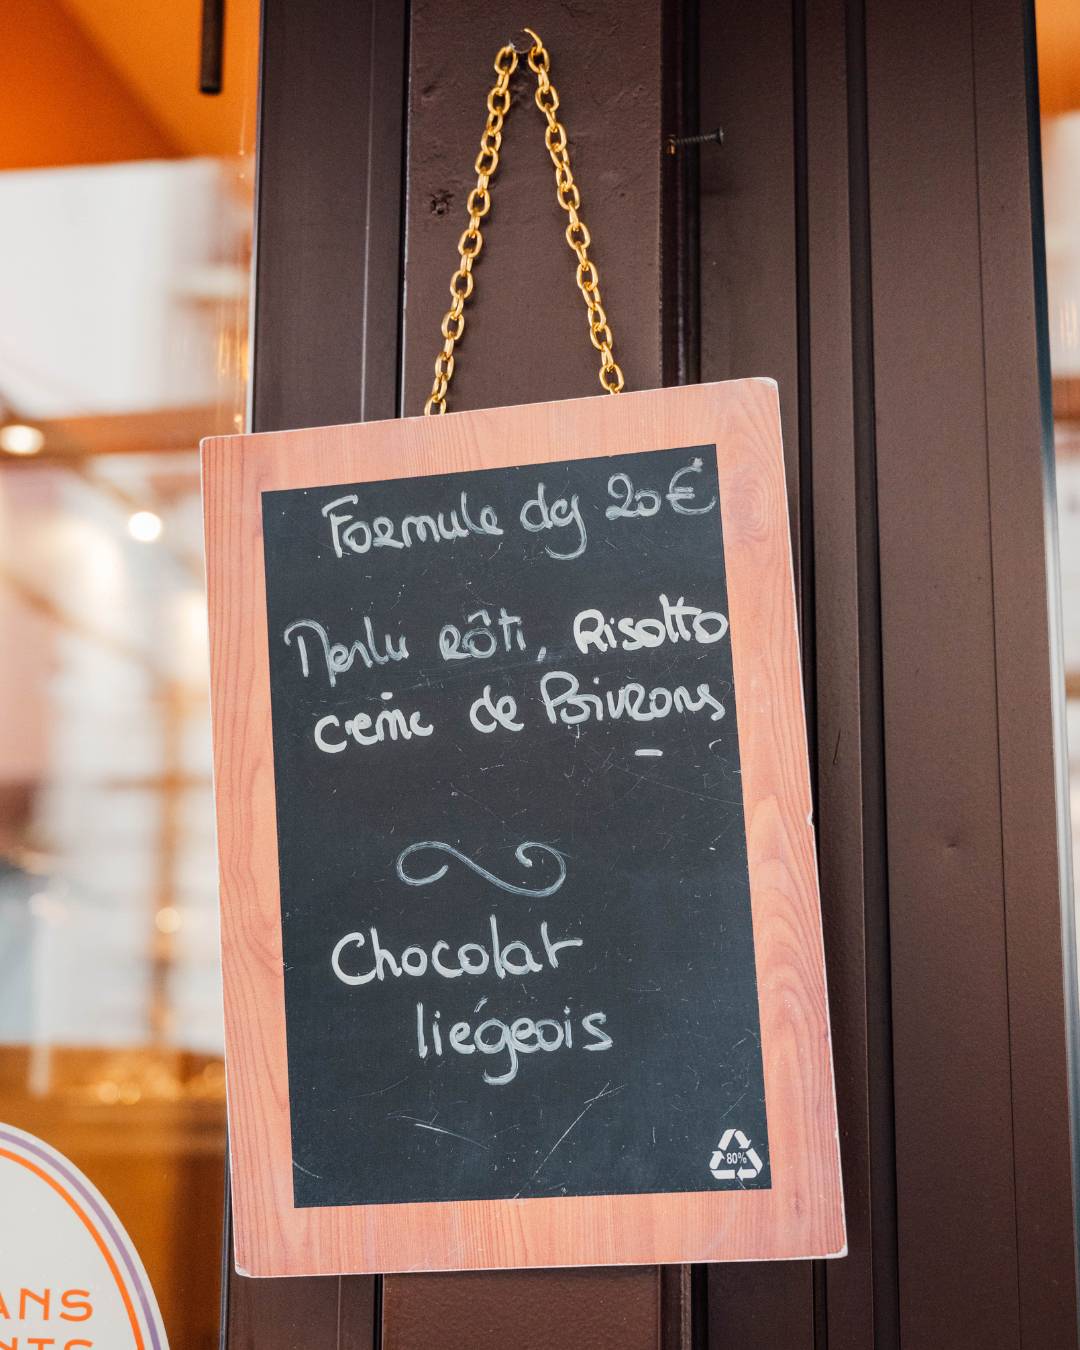 Formule dej 20€
Merlu rôti, Risotto
crème de Poivrons
Chocolat
liégeois
80%
ANS
NTS